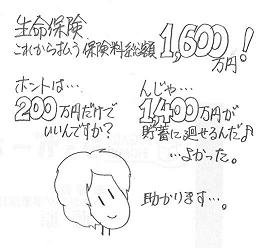 生命保険
これから払う保険料総額 1,600万円!
ホントは…
200万円だけで
いいんですか?
んじゃ…
1,400万円が
貯蓄に廻せるんだ♪
…よかった。
助かります…。